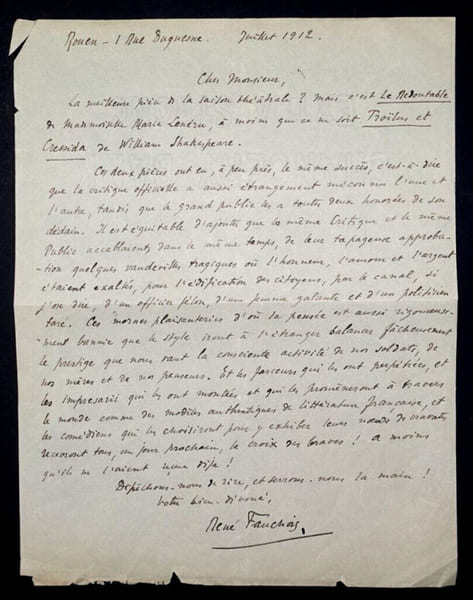 Rouen – 1 Rue Duquesne. Juillet 1912.
Cher Monsieur,
La meilleure pièce de la saison théâtrale ? Mais c'est Le Redoutable
de Mademoiselle Marie Lenéru, à moins que ce ne soit Troïlus et
Cressida de William Shakespeare.
Ces deux pièces ont eu, à peu près, le même succès, c'est-à-dire
que la critique officielle a aussi étrangement méconnu l'une et
l'autre, tandis que le grand public les a toutes deux honorées de son
dédain. Il est équitable d'ajouter que les même Critique et le même
Public accablaient, dans le même temps, de leur tapageuse approba-
-tion quelques vaudevilles tragiques où l'honneur, l'amour et l'argent
étaient exaltés, pour l'édification des citoyens, par le canal, si
j'ose dire, d'un officier félon, d'une femme galante et d'un politicien
taré. Ces mornes plaisanteries d'où la pensée est aussi rigoureuse-
-ment bannie que le style iront à l'étranger balancer fâcheusement
le prestige que nous vaut la consciente activité de nos soldats, de
nos mères et de nos penseurs. Et les farceurs qui les ont perpétrées, et
les impresarii qui les ont montées et qui les promèneront à travers
le monde comme des modèles authentiques de littérature française, et
les comédiens qui les choisiront pour y exhiber leurs nœuds de cravates
recevront tous, un jour prochain, la croix des braves ! à moins
qu'ils ne l'aient reçue déjà !
Dépêchons-nous de rire, et serrons-nous la main !
Votre bien dévoué,
René Fauchois.